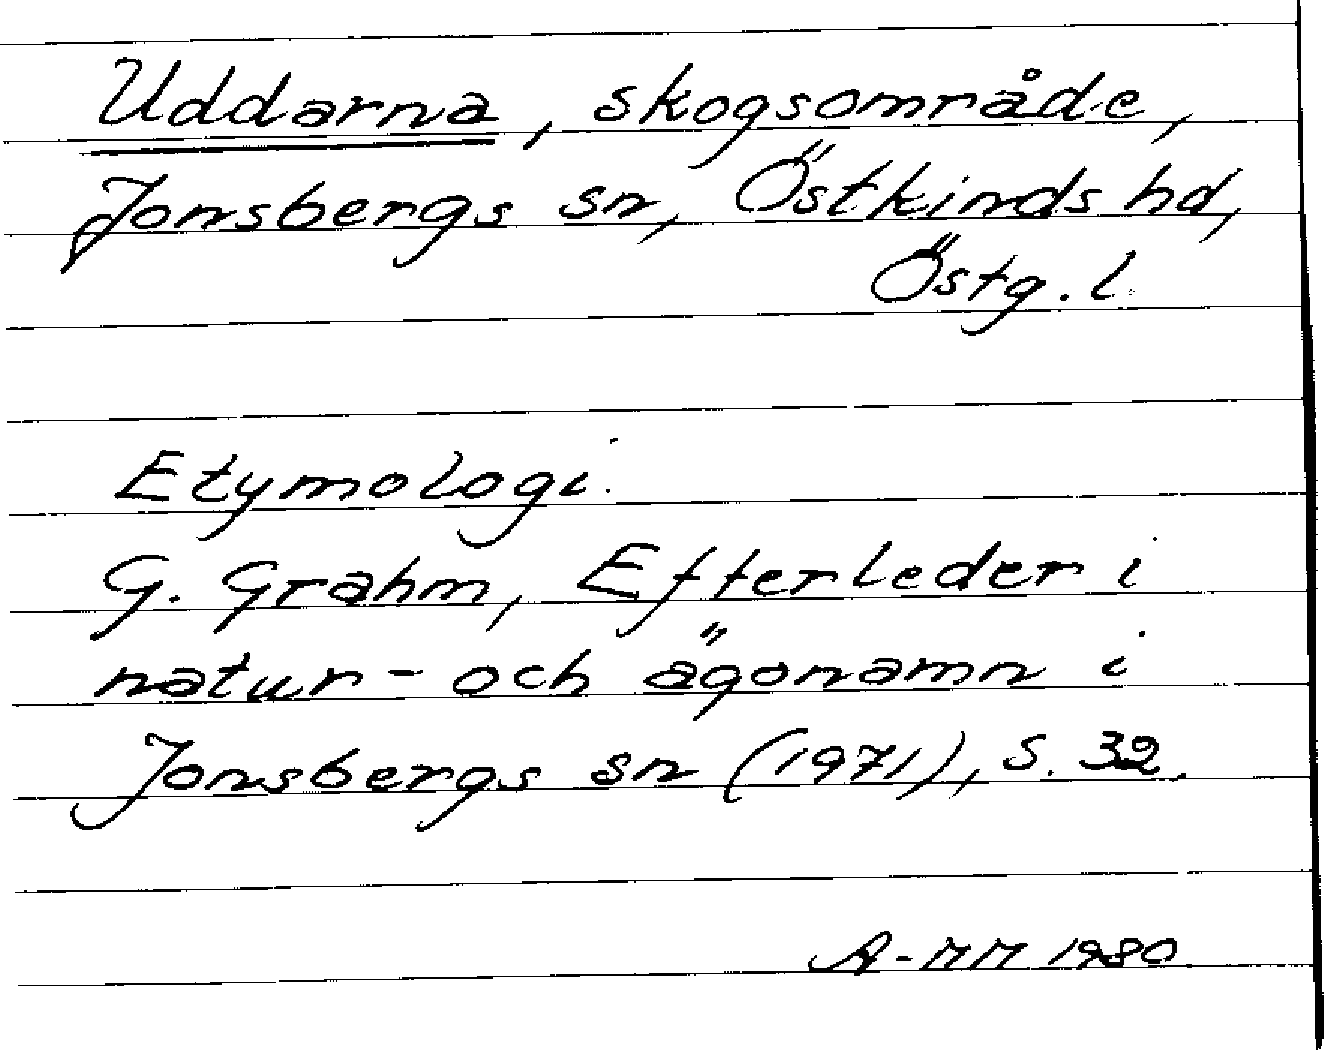 Uddarna, skogsområde,
Jonsbergs sn, Östkinds hd,
Östg. l.
Etymologi.
G. Grahm, Efterleder i
natur- och ägonamn i
Jonsbergs sn (1971), s. 32.
A-MM 1980